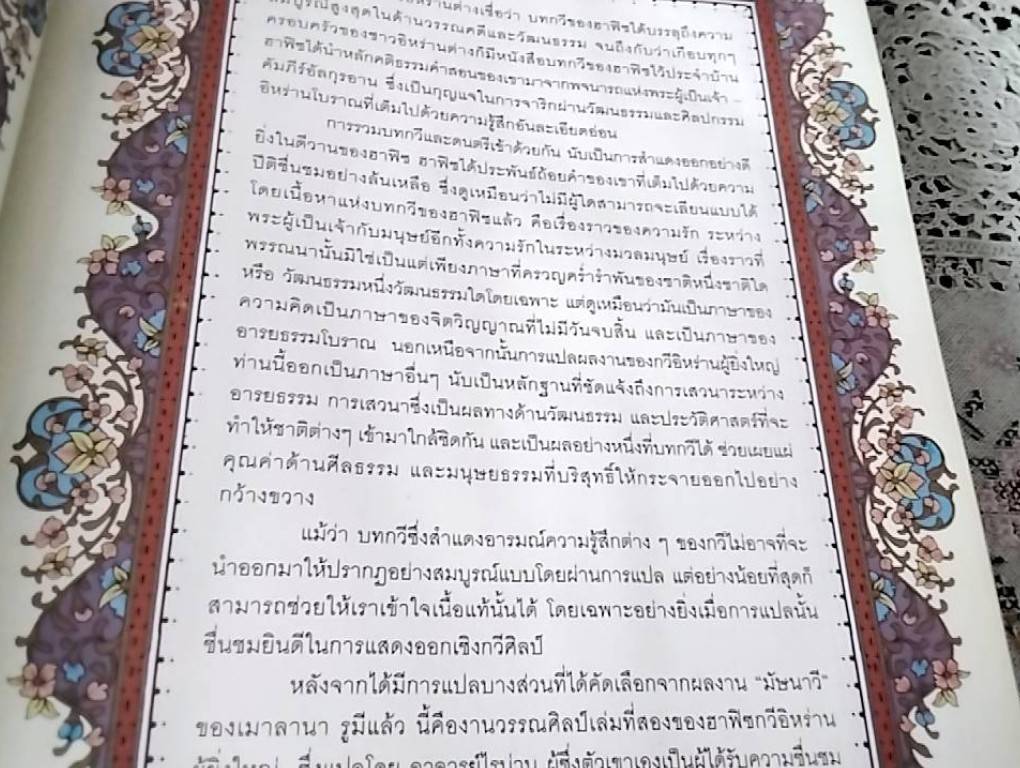 อิหร่านต่างเชื่อว่า บทกวีของฮาฟิซได้บรรลุถึงความ
สมบูรณ์สูงสุดในด้านวรรณคดีและวัฒนธรรม จนถึงกับว่าเกือบทุกๆ
ครอบครัวของชาวอิหร่านต่างก็มีหนังสือบทกวีของฮาฟิซไว้ประจำบ้าน
ฮาฟิซได้นำหลักคติธรรมคำสอนของเขามาจากพจนารถแห่งพระผู้เป็นเจ้า -
คัมภีร์อัลกุรอาน ซึ่งเป็นกุญแจในการจาริกผ่านวัฒนธรรมและศิลปกรรม
อิหร่านโบราณที่เต็มไปด้วยความรู้สึกอันละเอียดอ่อน
การรวมบทกวีและดนตรีเข้าด้วยกัน นับเป็นการสำแดงออกอย่างดี
ยิ่งในดีวานของฮาฟิซ ฮาฟิซได้ประพันธ์ถ้อยคำของเขาที่เต็มไปด้วยความ
ปีติชื่นชมอย่างล้นเหลือ ซึ่งดูเหมือนว่าไม่มีผู้ใดสามารถจะเลียนแบบได้
โดยเนื้อหาแห่งบทกวีของฮาฟิซแล้ว คือเรื่องราวของความรัก ระหว่าง
พระผู้เป็นเจ้ากับมนุษย์อีกทั้งความรักในระหว่างมวลมนุษย์ เรื่องราวที่
พรรณนานั้นมิใช่เป็นแต่เพียงภาษาที่ครวญคร่ำรำพันของชาติหนึ่งชาติใด
หรือ วัฒนธรรมหนึ่งวัฒนธรรมใดโดยเฉพาะ แต่ดูเหมือนว่ามันเป็นภาษาของ
ความคิดเป็นภาษาของจิตวิญญาณที่ไม่มีวันจบสิ้น และเป็นภาษาของ
อารยธรรมโบราณ นอกเหนือจากนั้นการแปลผลงานของกวีอิหร่านผู้ยิ่งใหญ่
ท่านนี้ออกเป็นภาษาอื่นๆ นับเป็นหลักฐานที่ชัดแจ้งถึงการเสวนาระหว่าง
อารยธรรม การเสวนาซึ่งเป็นผลทางด้านวัฒนธรรม และประวัติศาสตร์ที่จะ
ทำให้ชาติต่างๆ เข้ามาใกล้ชิดกัน และเป็นผลอย่างหนึ่งที่บทกวีได้ ช่วยเผยแผ่
คุณค่าด้านศีลธรรม และมนุษยธรรมที่บริสุทธิ์ให้กระจายออกไปอย่าง
กว้างขวาง
แม้ว่า บทกวีซึ่งสำแดงอารมณ์ความรู้สึกต่าง ๆ ของกวีไม่อาจที่จะ
นำออกมาให้ปรากฏอย่างสมบูรณ์แบบโดยผ่านการแปล แต่อย่างน้อยที่สุดก็
สามารถช่วยให้เราเข้าใจเนื้อแท้นั้นได้ โดยเฉพาะอย่างยิ่งเมื่อการแปลนั้น
ชื่นชมยินดีในการแสดงออกเชิงกวีศิลป์
หลังจากได้มีการแปลบางส่วนที่ได้คัดเลือกจากผลงาน “มัษนาวี”
ของเมาลานา รูมีแล้ว นี้คืองานวรรณศิลป์เล่มที่สองของฮาฟิซกวีอิหร่าน
ผู้ยิ่งใหญ่ ซึ่งแปลโดย อาจารย์ไรน่าน ผู้ซึ่งตัวเขาเองเป็นผู้ได้รับความชื่นชม